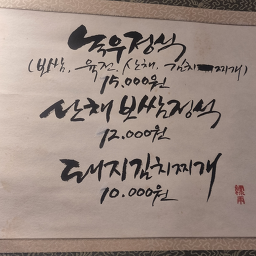 녹우정식
(보쌈, 육전, 산채, 김치찌개)
15.000원
산채보쌈정식
12.000원
돼지김치찌개
10.000원